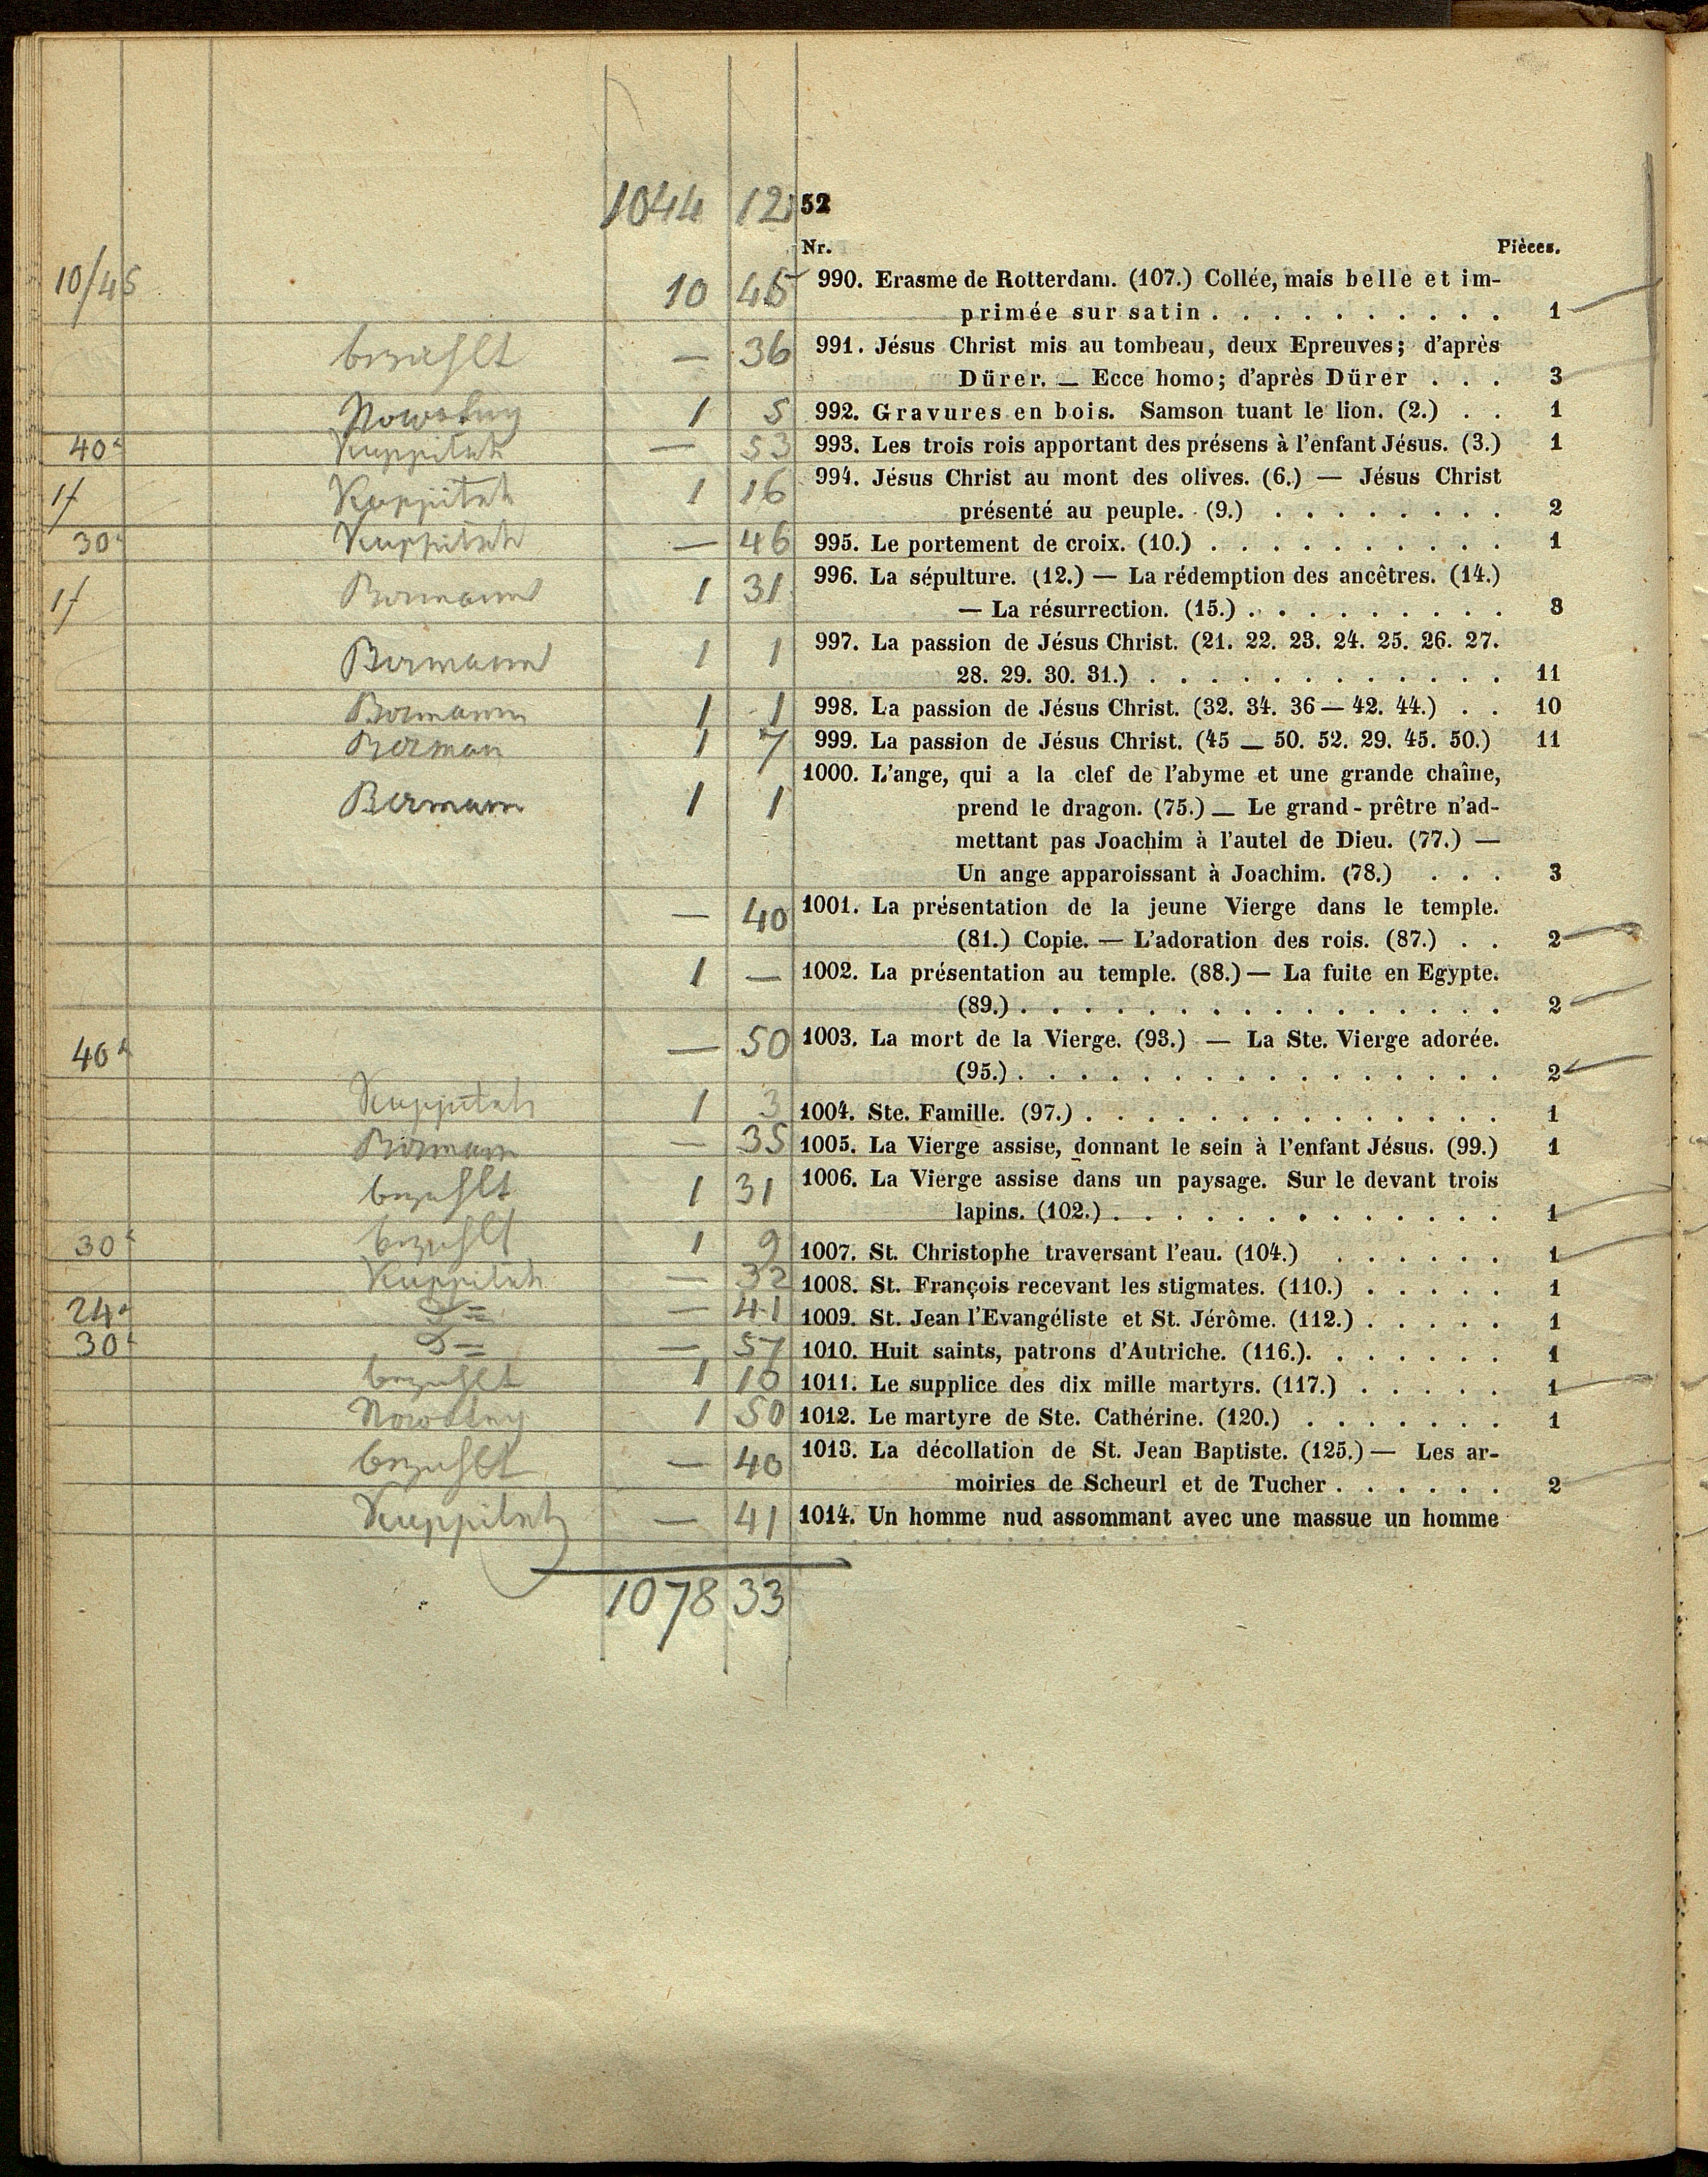 1044 12 52
Nr. Pièces.
10/45 10 45 990. Erasme de Rotterdam. (107.) Collée, mais belle et im-
primée sur satin . . . . . . . . . . 1
bezahlt — 36 991. Jésus Christ mis au tombeau, deux Epreuves; d'après
Dürer. — Ecce homo; d'après Dürer . . . 3
Nowotny 1 5 992. Gravures en bois. Samson tuant le lion. (2.) . . 1
40 Kuppitsch — 53 993. Les trois rois apportant des présens à l'enfant Jésus. (3.) 1
1f Kuppitsch 1 16 994. Jésus Christ au mont des olives. (6.) — Jésus Christ
présenté au peuple. (9.) . . . . . . . . 2
30 Kuppitsch — 46 995. Le portement de croix. (10.) . . . . . . . . . . 1
1f Bermann 1 31 996. La sépulture. (12.) — La rédemption des ancêtres. (14.)
— La résurrection. (15.) . . . . . . . . . 3
Bermann 1 1 997. La passion de Jésus Christ. (21. 22. 23. 24. 25. 26. 27.
28. 29. 30. 31.) . . . . . . . . . . . . 11
Bermann 1 1 998. La passion de Jésus Christ. (32. 34. 36 — 42. 44.) . . 10
Berman 1 7 999. La passion de Jésus Christ. (45 — 50. 52. 29. 45. 50.) 11
Bermann 1 1 1000. L'ange, qui a la clef de l'abyme et une grande chaîne,
prend le dragon. (75.) — Le grand-prêtre n'ad-
mettant pas Joachim à l'autel de Dieu. (77.) —
Un ange apparoissant à Joachim. (78.) . . . 3
— 40 1001. La présentation de la jeune Vierge dans le temple.
(81.) Copie. — L'adoration des rois. (87.) . . 2
1 — 1002. La présentation au temple. (88.) — La fuite en Egypte.
(89.) . . . . . . . . . . . . . . . . 2
40 — 50 1003. La mort de la Vierge. (93.) — La Ste. Vierge adorée.
(95.) . . . . . . . . . . . . . . . . 2
Kuppitsch 1 3 1004. Ste. Famille. (97.) . . . . . . . . . . . . . . 1
Bermann — 35 1005. La Vierge assise, donnant le sein à l'enfant Jésus. (99.) 1
bezahlt 1 31 1006. La Vierge assise dans un paysage. Sur le devant trois
lapins. (102.) . . . . . . . . . . . . . 1
30 bezahlt 1 9 1007. St. Christophe traversant l'eau. (104.) . . . . . . 1
Kuppitsch — 32 1008. St. François recevant les stigmates. (110.) . . . . . 1
24 — 41 1009. St. Jean l'Evangéliste et St. Jérôme. (112.) . . . . . 1
30 — 57 1010. Huit saints, patrons d'Autriche. (116.). . . . . . . 1
bezahlt 1 10 1011. Le supplice des dix mille martyrs. (117.) . . . . . 1
Nowotny 1 50 1012. Le martyre de Ste. Cathérine. (120.) . . . . . . . 1
bezahlt — 40 1013. La décollation de St. Jean Baptiste. (125.) — Les ar-
moiries de Scheurl et de Tucher . . . . . . 2
Kuppitsch — 41 1014. Un homme nud assommant avec une massue un homme
1078 33